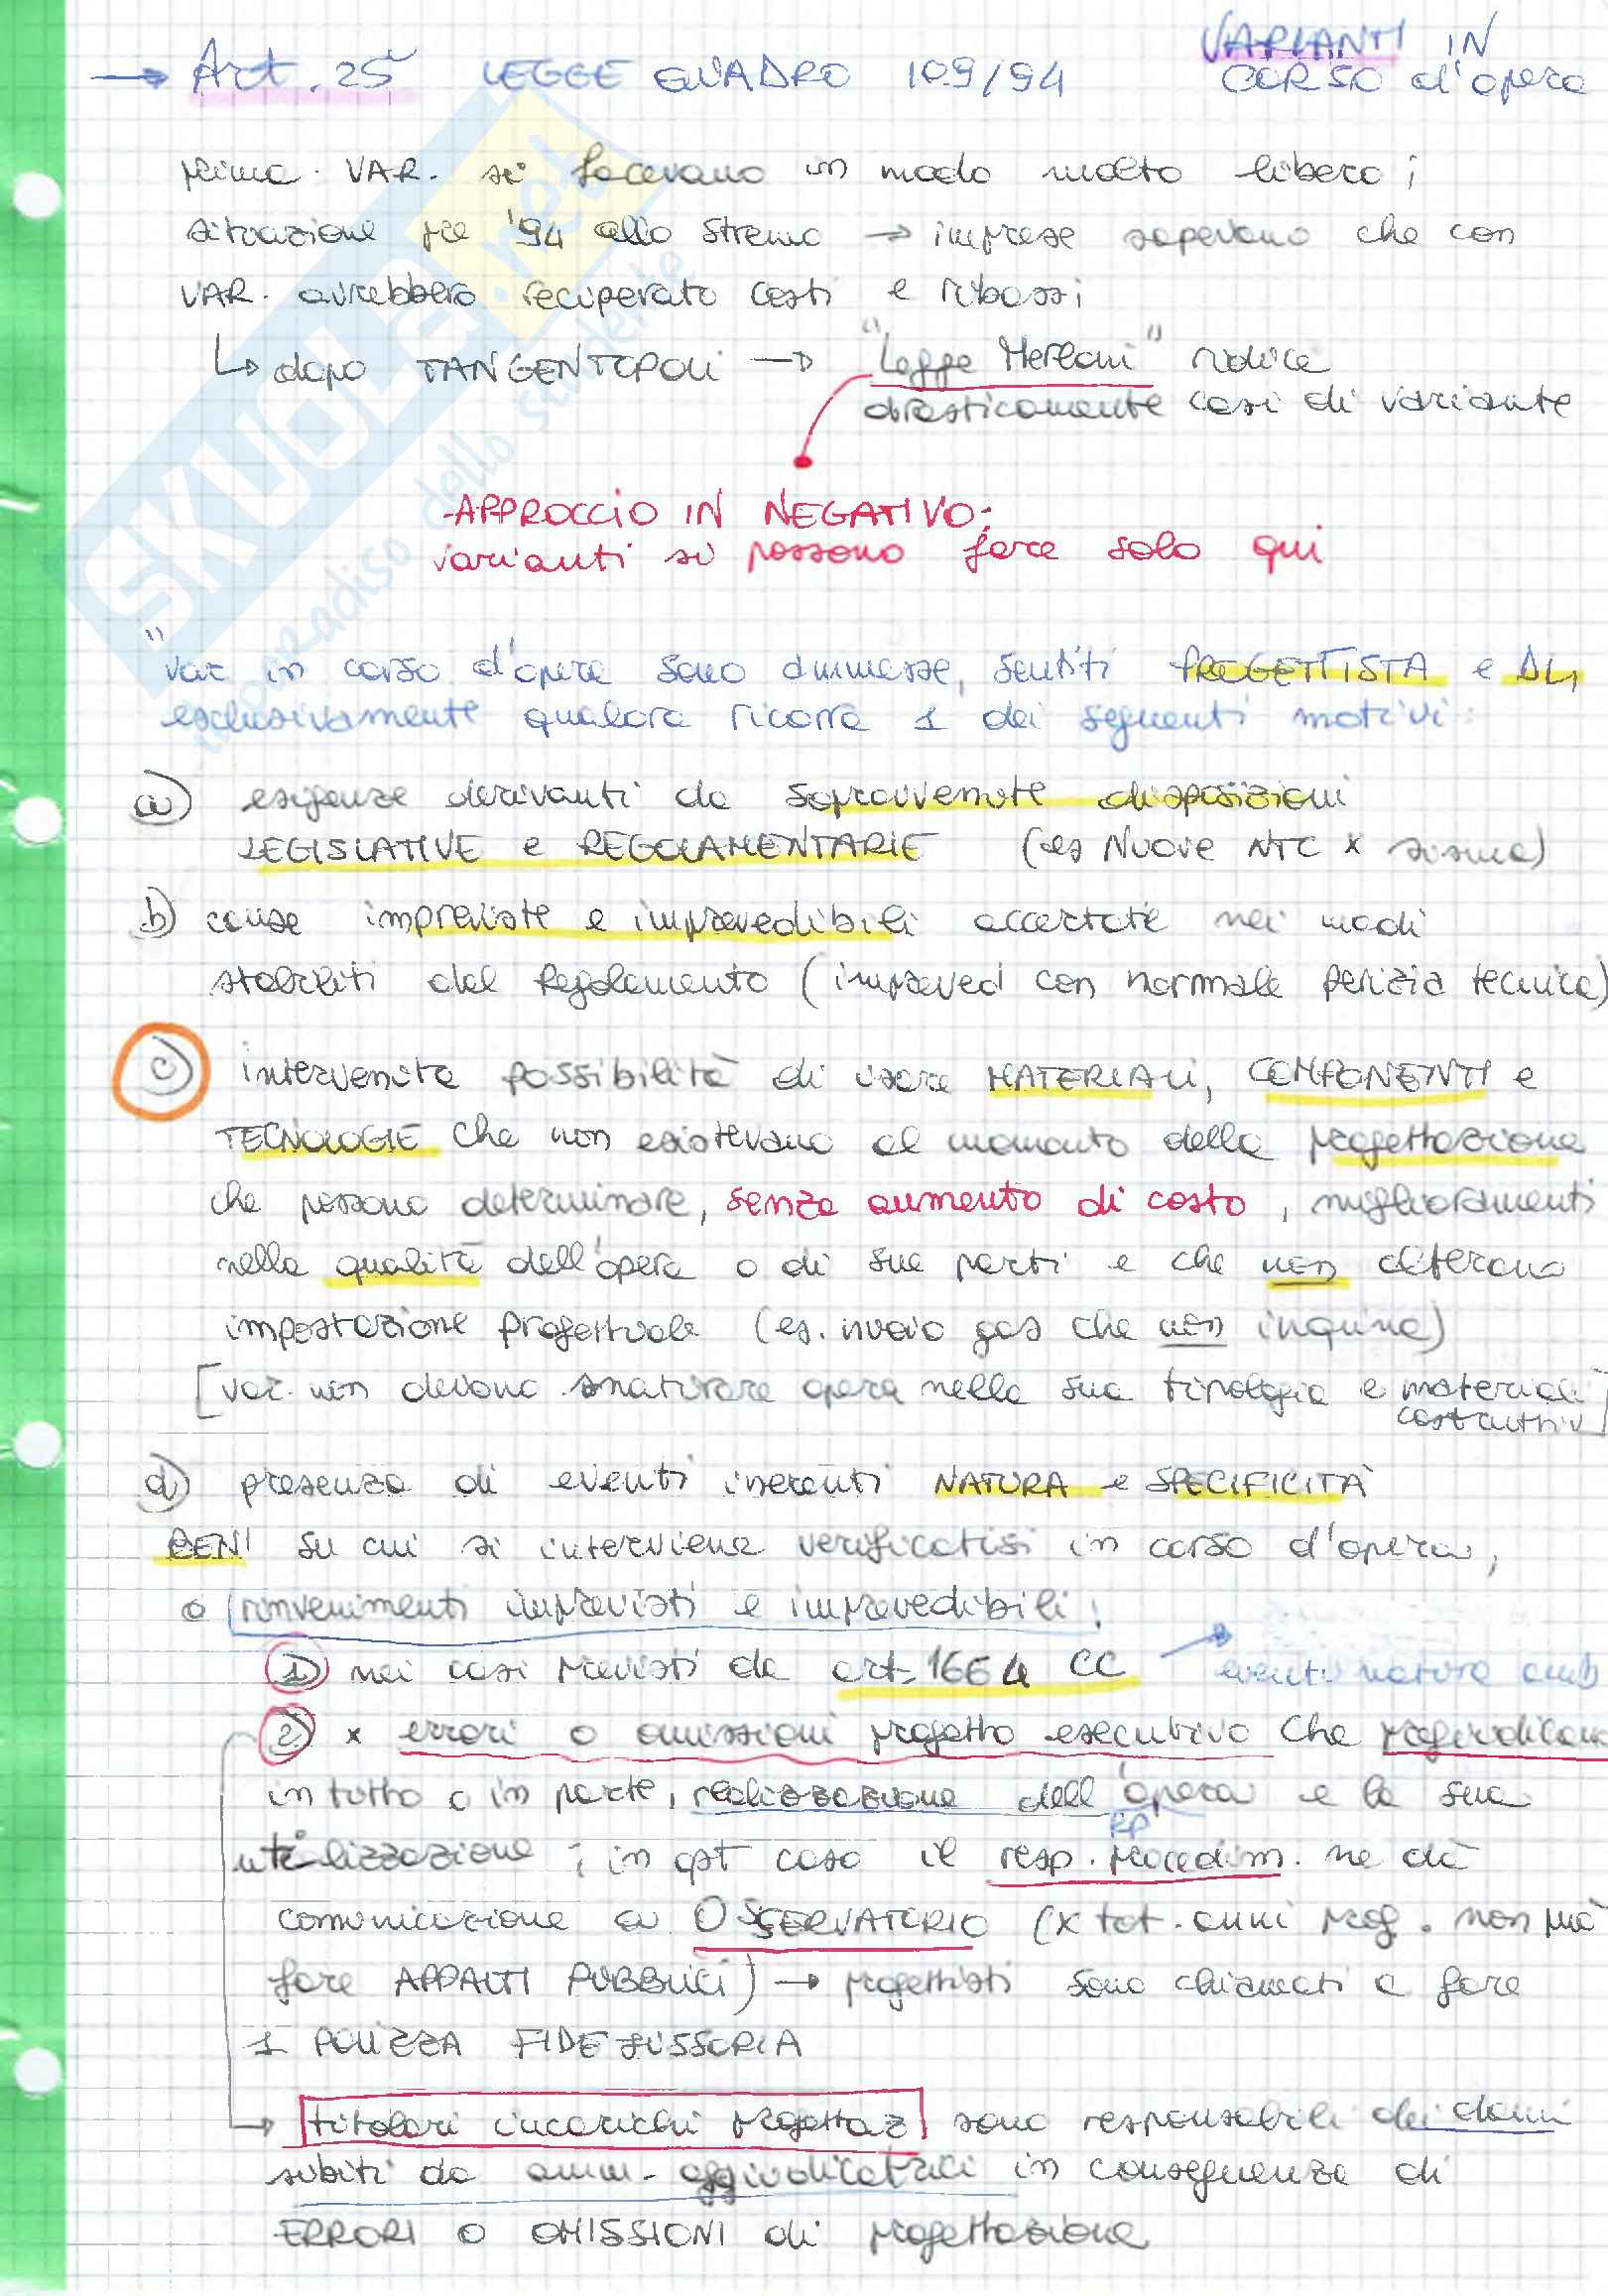 → Art. 25 LEGGE QUADRO 109/94 VARIANTI IN
CORSO d'opera
prima VAR. si facevano in modo molto libero;
situazione pre '94 allo stremo → imprese sapevano che con
VAR. avrebbero recuperato costi e ribassi
↳ dopo TANGENTOPOLI → "Legge Merloni" riduce
drasticamente casi di variante
-APPROCCIO IN NEGATIVO:
varianti si possono fare solo qui
"Var in corso d'opera sono ammesse, sentiti PROGETTISTA e DL,
esclusivamente qualora ricorra 1 dei seguenti motivi:
a) esigenze derivanti da sopravvenute disposizioni
LEGISLATIVE e REGOLAMENTARIE (es Nuove NTC x sisma)
b) cause impreviste e imprevedibili accertate nei modi
stabiliti dal Regolamento (impreved con normale perizia tecnica)
c) intervenuta possibilità di usare MATERIALI, COMPONENTI e
TECNOLOGIE che non esistevano al momento della progettazione
che possono determinare, senza aumento di costo, miglioramenti
nella qualità dell'opera o di sue parti e che non alterano
impostazione progettuale (es. nuovo gas che non inquina)
[var. non devono snaturare opera nella sua tipologia e materiali
costruttivi]
d) presenza di eventi inerenti NATURA e SPECIFICITÀ
BENI su cui si interviene verificatisi in corso d'opera,
o rinvenimenti imprevisti e imprevedibili;
1) nei casi previsti da art. 1664 CC → eventi natura amb
2) x errori o omissioni progetto esecutivo che pregiudicano
in tutto o in parte, realizzazione dell'opera e la sua
RP
utilizzazione; in qst caso il resp. procedim. ne dà
comunicazione a OSSERVATORIO (x tot. anni prog. non può
fare APPALTI PUBBLICI) → progettisti sono chiamati a fare
1 POLIZZA FIDEJUSSORIA
→ titolari incarichi progettaz sono responsabili dei danni
subiti da amm. aggiudicatrici in conseguenza di
ERRORI O OMISSIONI di progettazione
SKUOLA.net
il paradiso dello studente